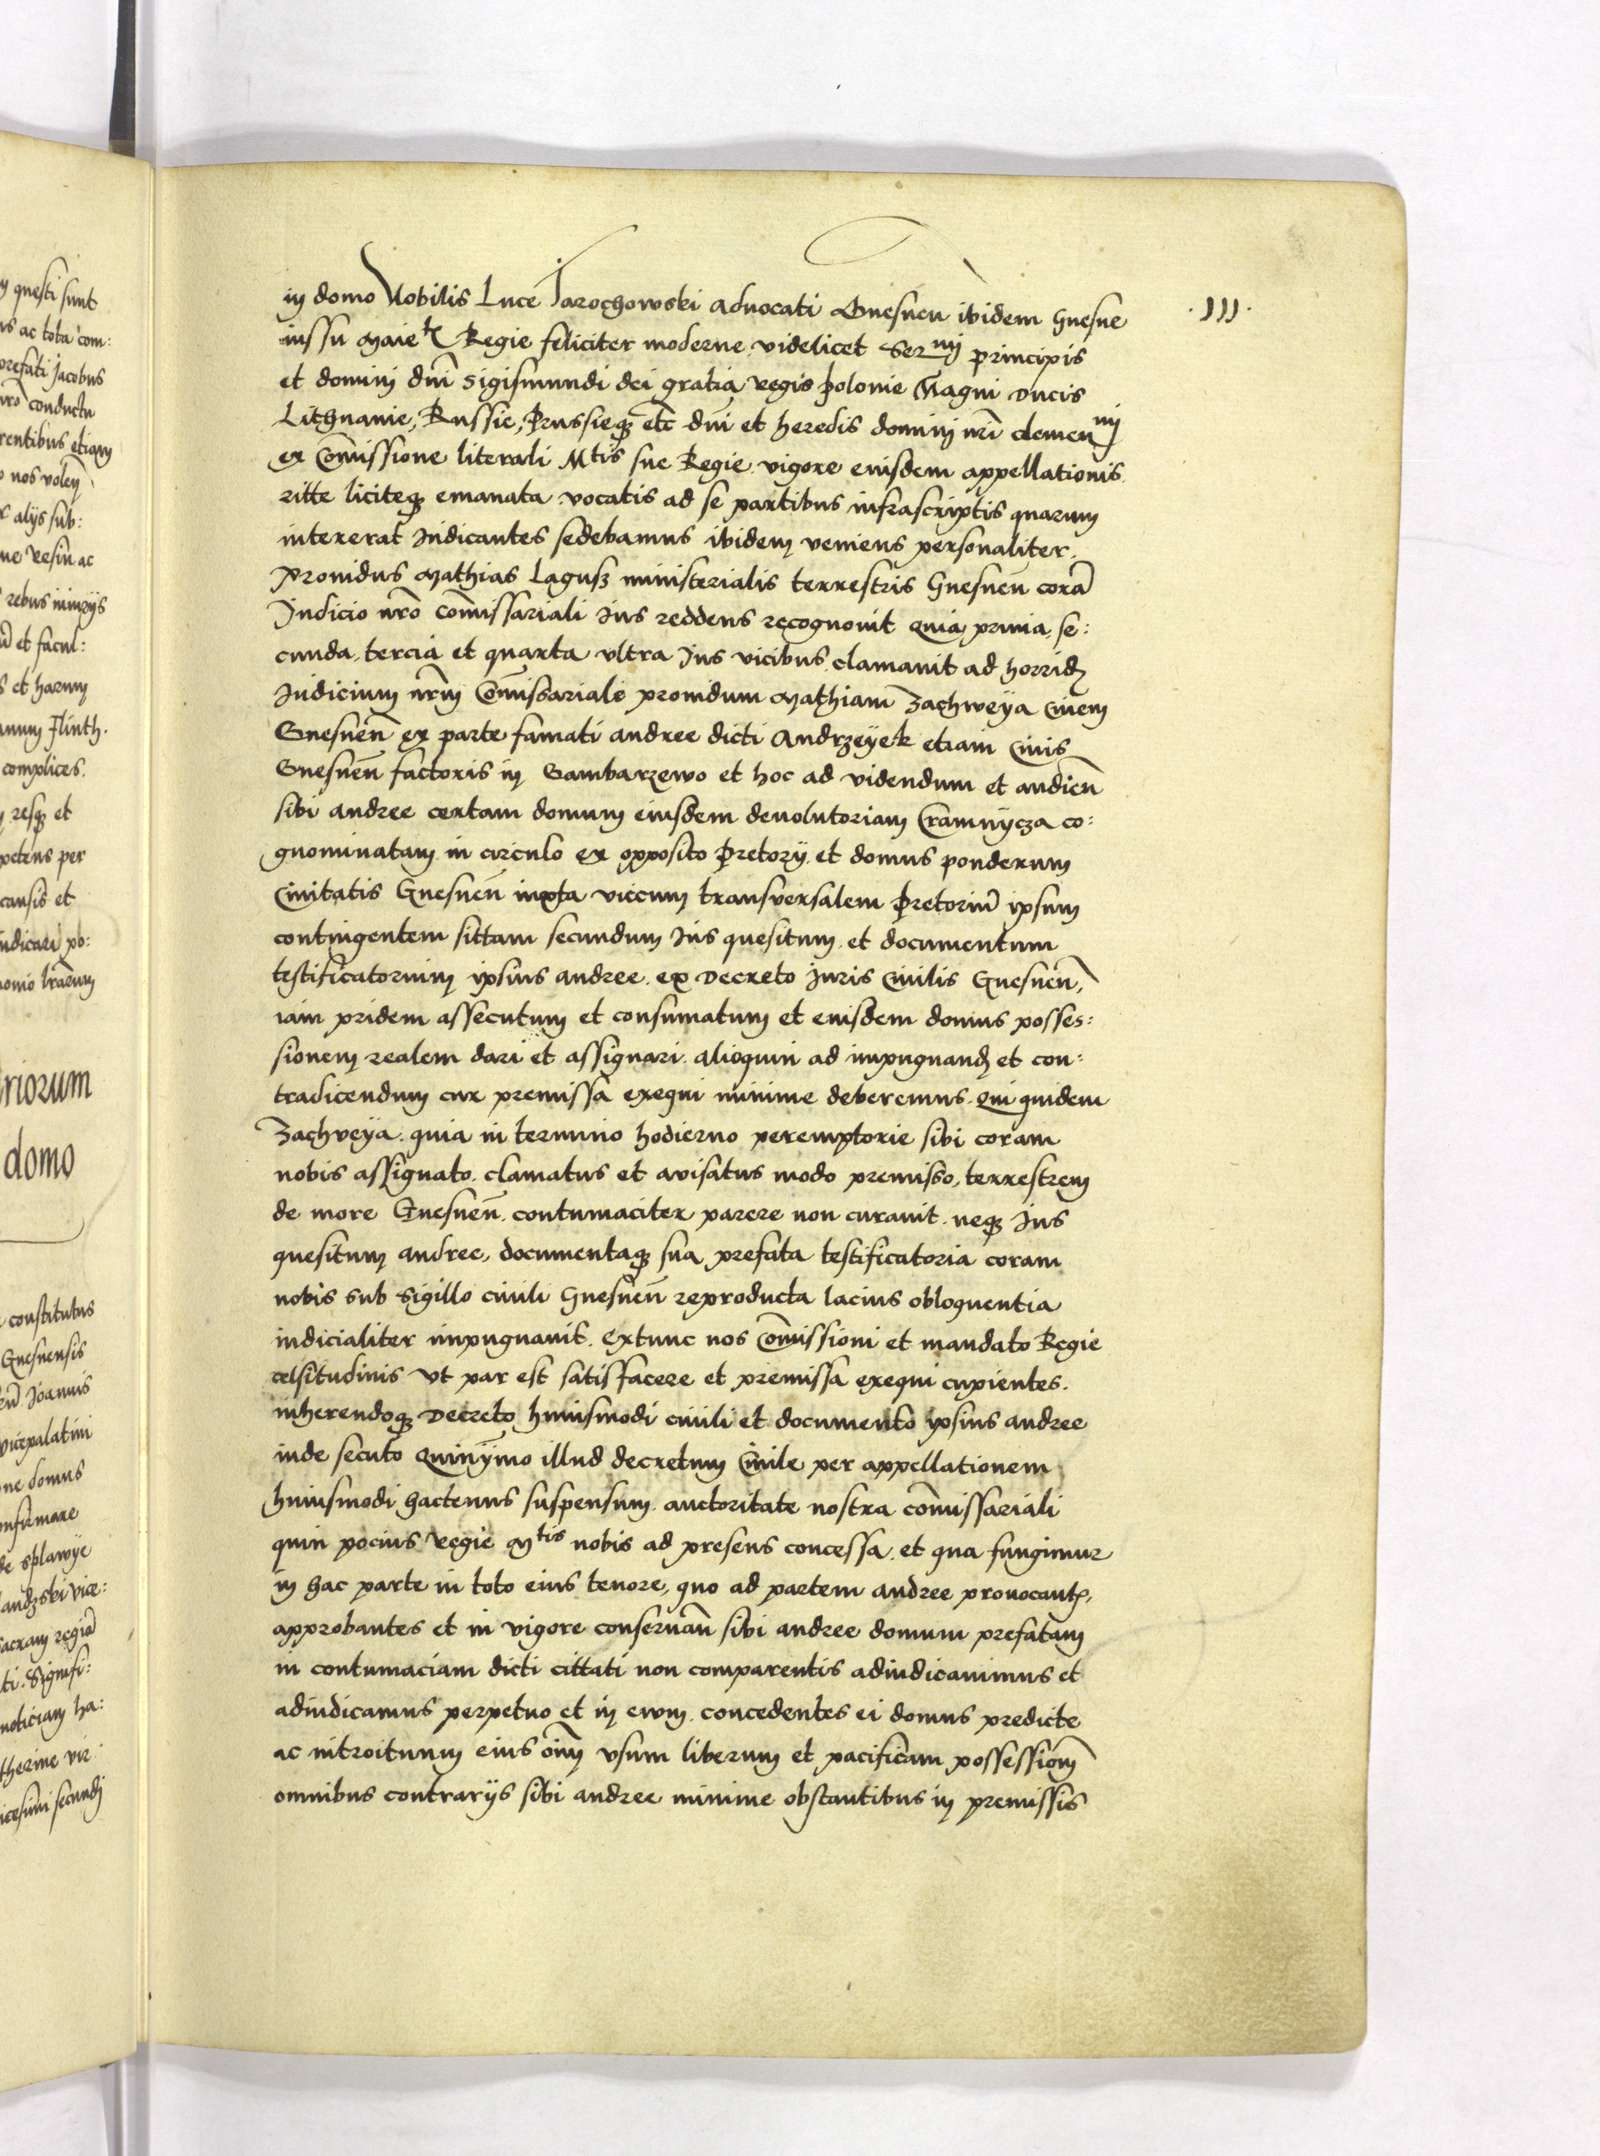 .III.
in domo Nobilis Luce Jarochowski advocati Gnesnen ibidem Gnesne
iussu Maie^t Regie feliciter moderne videlicet Ser^mi principis
et domini dni Sigismundi dei gratia regis Polonie Magni Ducis
Lithuanie, Russie, Prussieq etc dni et heredis domini nri clemen^mi
ex Comissione literali M^tis sue Regie vigore eiusdem appellationis
ritte liciteq emanata vocatis ad se partibus infrascriptis quarum
intererat Judicantes sedebamus ibidem veniens personaliter.
Providus Mathias Lagusz ministerialis terrestris Gnesnen cora
Judicio nro comissariali ius reddens recognovit quia prima se:
cunda, tercia et quarta ultra Jus vicibus clamavit ad horrid
Judicium nrm Comissariale providum Mathiam Zachweÿa civem
Gnesnen ex parte famati andree dicti Andrzeÿek etiam civis
Gnesnen factoris in Gambarzewo et hoc ad videndum et audien
sibi andree certam domum eiusdem devolutoriam Cramnÿcza co:
gnominatam in circulo ex opposito Pretorÿ et domus ponderum
Civitatis Gnesnen iuxta viccum transversalem Pretoriu ipsum
contingentem sittam secundum Jus quesitum et documentum
testificatorium ipsius andree ex Decreto Juris Civilis Gnesnen,
iam pridem assecutum et consumatum et eiusdem domus posses:
sionem realem dari et assignari alioquin ad impugnand et con:
tradicendum cur premissa exequi minime deberemus. Qui quidem
Zachveÿa quia in termino hodierno peremptorie sibi coram
nobis assignato clamatus et avisatus modo premisso, terrestrem
de more Gnesnen contumaciter parere non curavit neq Jus
quesitum andree, documentaq sua prefata testificatoria coram
nobis sub sigillo civili Gnesnen reproducta lacius obloquentia
iudicialiter impugnavit. Extunc nos Comissioni et mandato Regie
celsitudinis ut par est satisfacere et premissa exequi cupientes.
inherendoq Decreto huiusmodi civili et documento ipsius andree
inde secuto Quinÿmo illud decretum Civile per appellationem
huiusmodi hactenus suspensum auctoritate nostra comissariali
quin pocius Regie M^tis nobis ad presens concessa et qua fungimur
in hac parte in toto eius tenore, quo ad partem andree provocant,
approbantes et in vigore conservan sibi andree domum prefatam
in contumaciam dicti cittati non comparentis adiudicavimus et
adiudicamus perpetuo et in evum concedentes ei domus predicte
ac introitum eius oim usum liberum et pacificam possessiom
omnibus contrarÿs sibi andree minime obstantibus in premissis